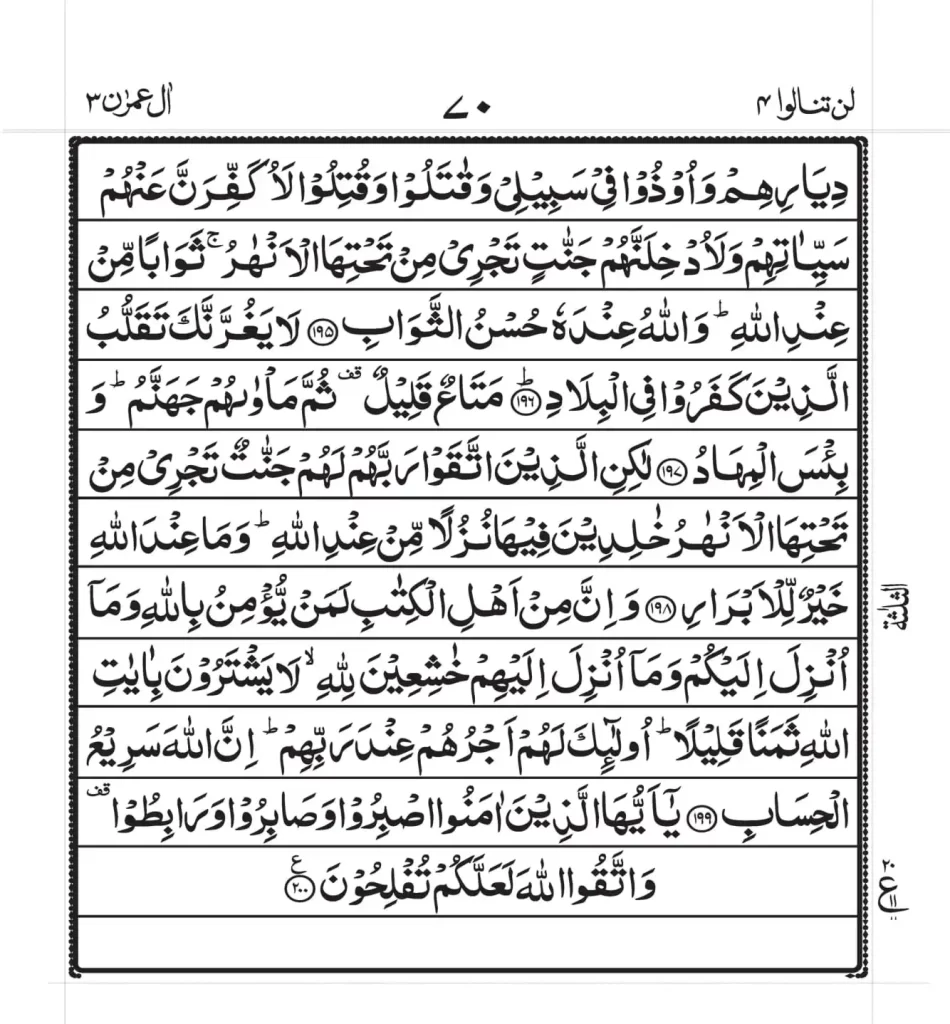 لن تنالوا ۴
۷۰
اٰل عمرٰن ۳
دِیَارِهِمْ وَاُوْذُوْا فِیْ سَبِیْلِیْ وَقٰتَلُوْا وَقُتِلُوْا لَاُكَفِّرَنَّ عَنْهُمْ
سَیِّاٰتِهِمْ وَلَاُدْخِلَنَّهُمْ جَنّٰتٍ تَجْرِیْ مِنْ تَحْتِهَا الْاَنْهٰرُ ۚ ثَوَابًا مِّنْ
عِنْدِ اللّٰهِ ؕ وَاللّٰهُ عِنْدَهٗ حُسْنُ الثَّوَابِ ﴿۱۹۵﴾ لَا یَغُرَّنَّكَ تَقَلُّبُ
الَّذِیْنَ كَفَرُوْا فِی الْبِلَادِ ﴿ؕ۱۹۶﴾ مَتَاعٌ قَلِیْلٌ قف ثُمَّ مَاْوٰىهُمْ جَهَنَّمُ ؕ وَ
بِئْسَ الْمِهَادُ ﴿۱۹۷﴾ لٰكِنِ الَّذِیْنَ اتَّقَوْا رَبَّهُمْ لَهُمْ جَنّٰتٌ تَجْرِیْ مِنْ
تَحْتِهَا الْاَنْهٰرُ خٰلِدِیْنَ فِیْهَا نُزُلًا مِّنْ عِنْدِ اللّٰهِ ؕ وَمَا عِنْدَ اللّٰهِ
خَیْرٌ لِّلْاَبْرَارِ ﴿۱۹۸﴾ وَاِنَّ مِنْ اَهْلِ الْكِتٰبِ لَمَنْ یُّؤْمِنُ بِاللّٰهِ وَمَاۤ
الثلٰثة
اُنْزِلَ اِلَیْكُمْ وَمَاۤ اُنْزِلَ اِلَیْهِمْ خٰشِعِیْنَ لِلّٰهِ ۙ لَا یَشْتَرُوْنَ بِاٰیٰتِ
اللّٰهِ ثَمَنًا قَلِیْلًا ؕ اُولٰٓئِكَ لَهُمْ اَجْرُهُمْ عِنْدَ رَبِّهِمْ ؕ اِنَّ اللّٰهَ سَرِیْعُ
الْحِسَابِ ﴿۱۹۹﴾ یٰۤاَیُّهَا الَّذِیْنَ اٰمَنُوا اصْبِرُوْا وَصَابِرُوْا وَرَابِطُوْا قف
وَاتَّقُوا اللّٰهَ لَعَلَّكُمْ تُفْلِحُوْنَ ﴿۲۰۰﴾ ع
۲۰
ع
۱۱